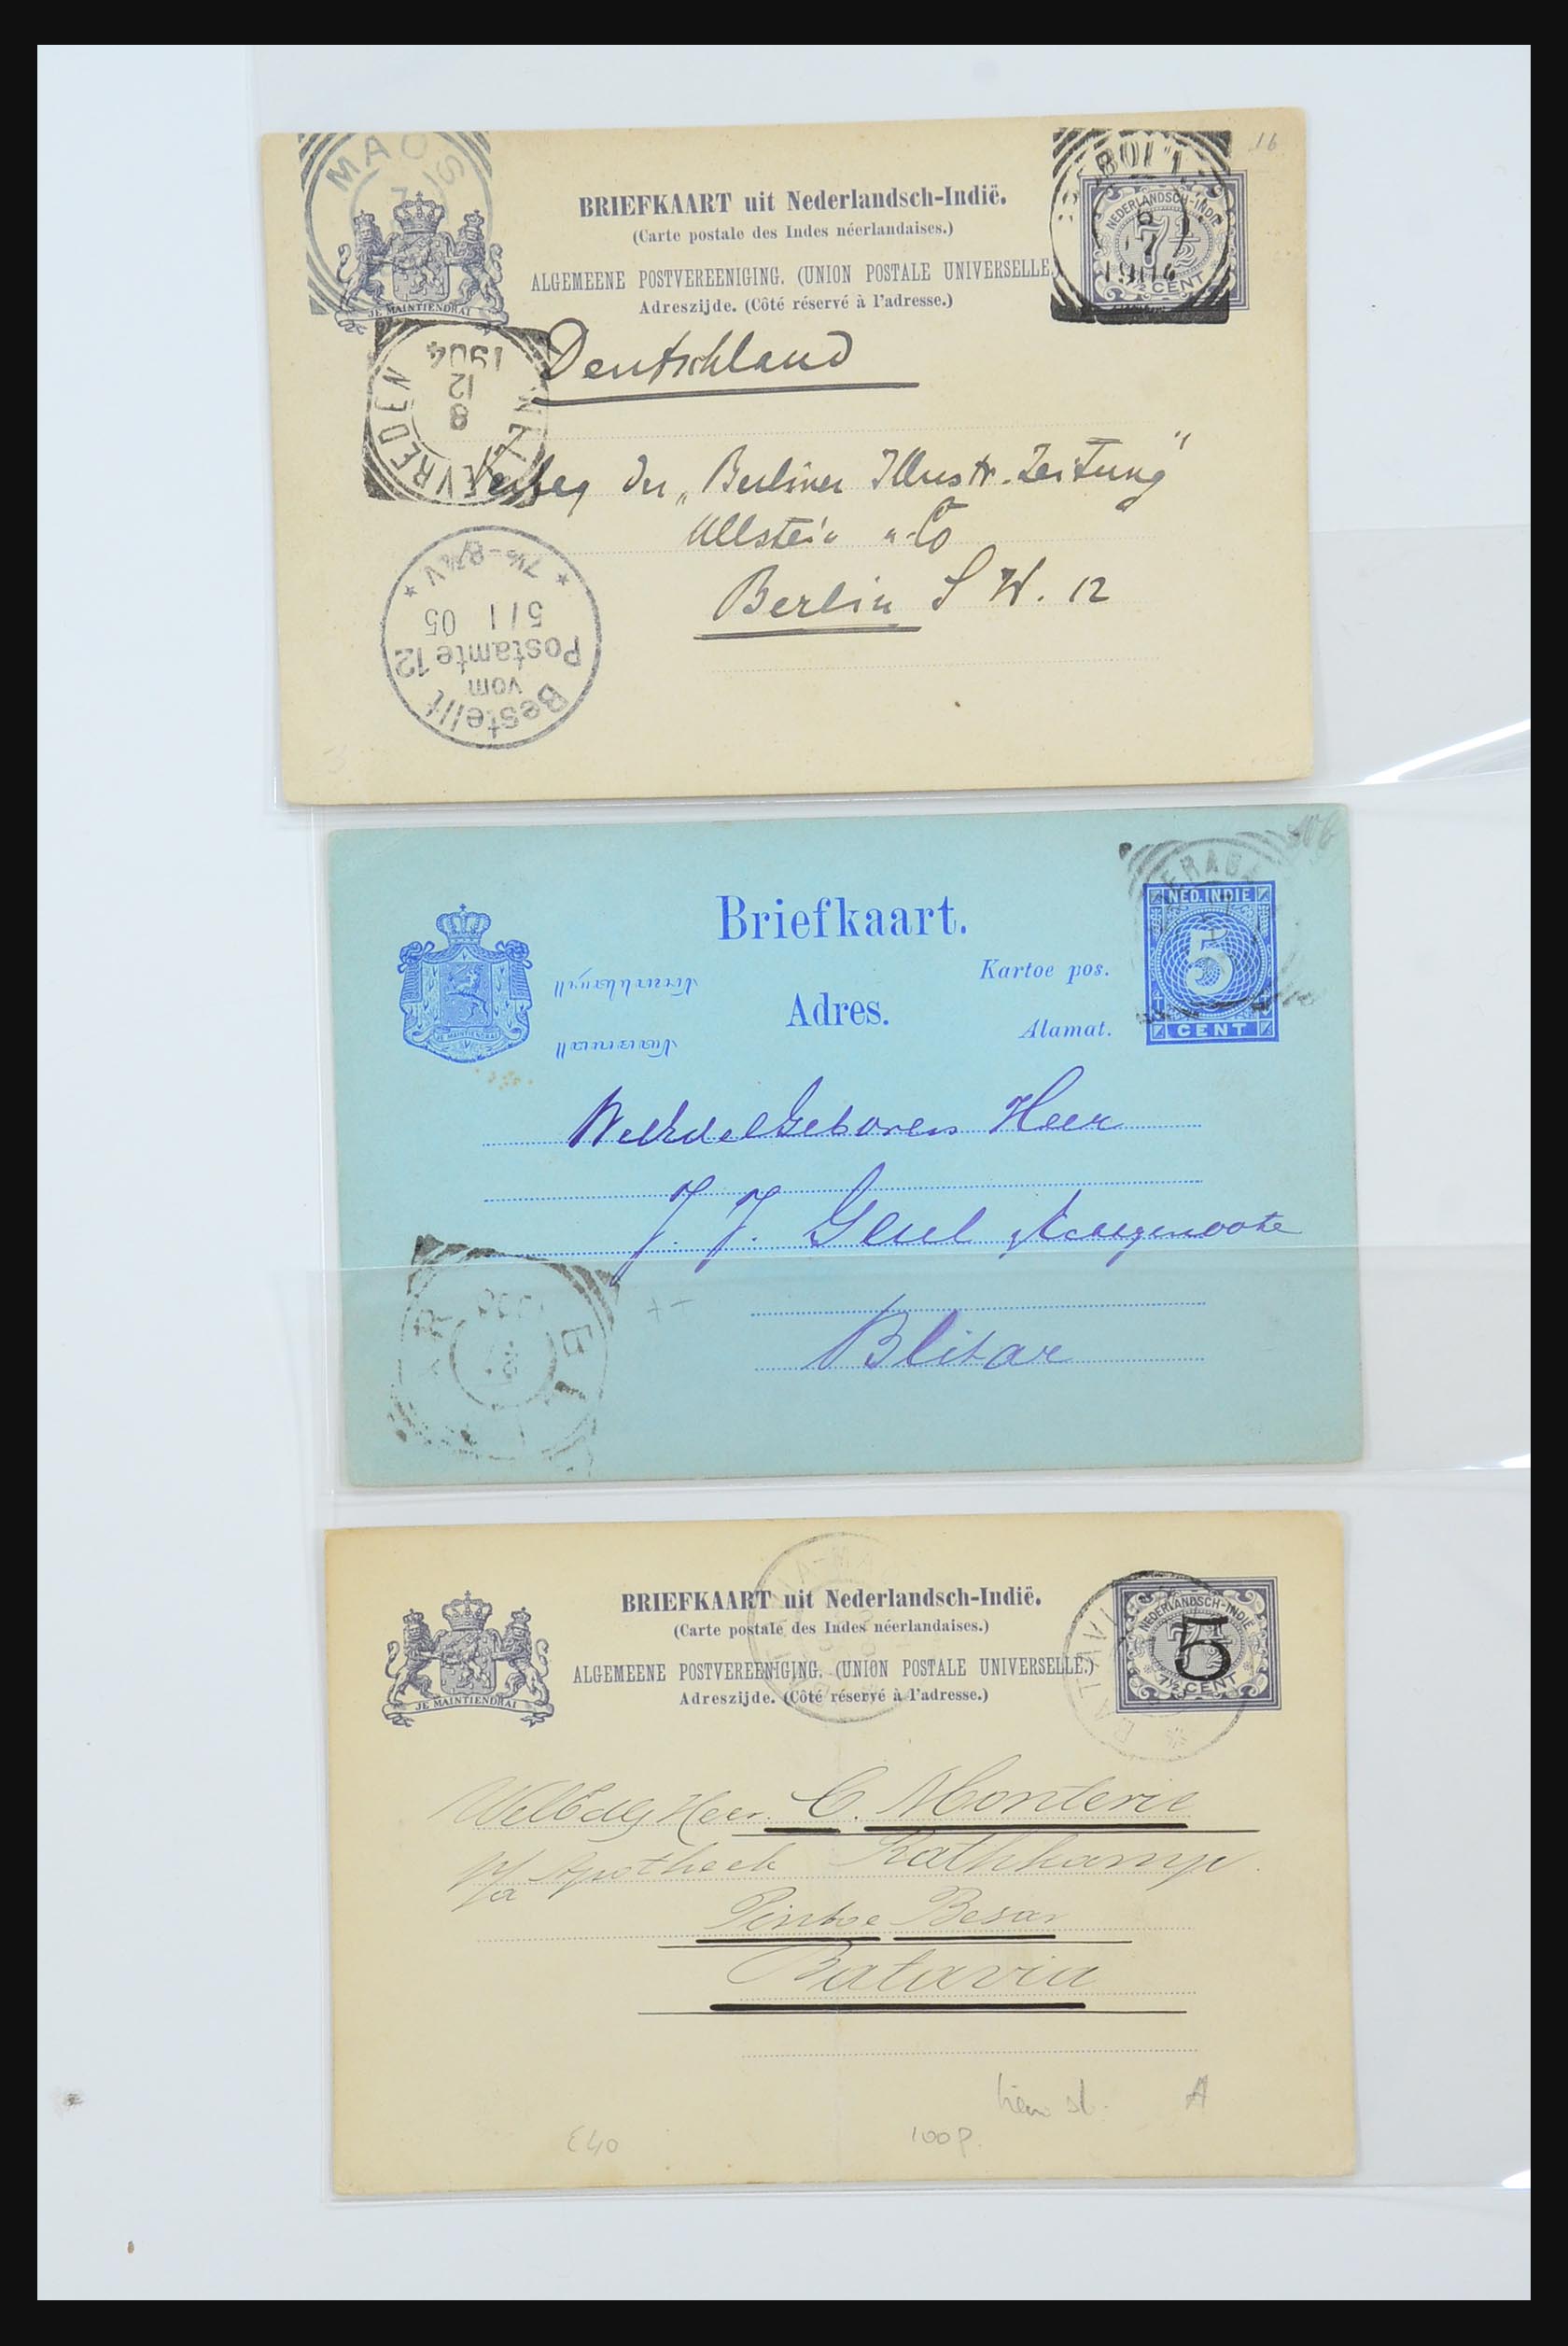 MAOS
16
BRIEFKAART uit Nederlandsch-Indië.
(Carte postale des Indes néerlandaises.)
ALGEMEENE POSTVEREENIGING. (UNION POSTALE UNIVERSELLE.)
Adreszijde. (Côté réservé à l'adresse.)
NEDERLANDSCH-INDIË
7½
7½ CENT
JE MAINTIENDRAI
WELTEVREDEN
8
12
1904
Deutschland
Verlag der „Berliner Illustr. Zeitung"
Ullstein & Co
Berlin S W. 12
Bestellt
vom
Postamte 12
5/1 05
7¼-8¼V
Briefkaart.
Kartoe pos.
Adres.
Alamat.
NED. INDIE
5
CENT
JE MAINTIENDRAI
WelEdelGeboren Heer
J. J. Geul
Blitar
BRIEFKAART uit Nederlandsch-Indië.
(Carte postale des Indes néerlandaises.)
ALGEMEENE POSTVEREENIGING. (UNION POSTALE UNIVERSELLE.)
Adreszijde. (Côté réservé à l'adresse.)
NEDERLANDSCH-INDIË
7½
5
7½ CENT
BATAVIA
JE MAINTIENDRAI
WelEdlg Heer C. Monterie
p/a Apotheek Rathkamp
Pintoe Besar
Batavia
A
€40
100p.